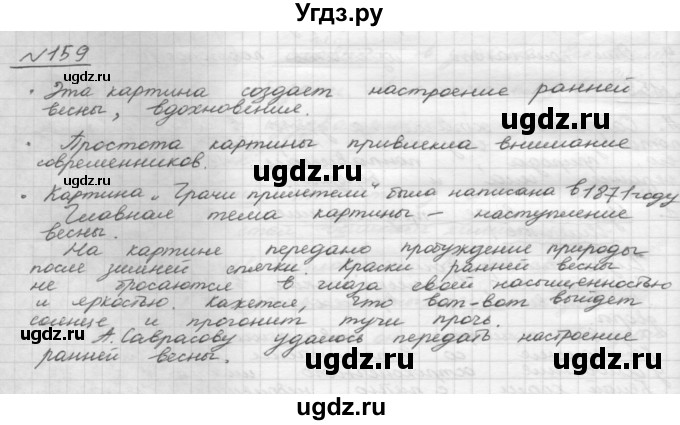 Угдз.ру
№159
• Эта картина создает настроение ранней
весны, вдохновение.
ugdz.ru
ugdz.ru
• Простота картины привлекла внимание
современников.
ugdz.ru
• Картина „Грачи прилетели" была написана в 1871 году
Главная тема картины – наступление
весны.
На картине передано пробуждение природы
после зимней спячки. Краски ранней весны
не бросаются в глаза своей насыщенностью
и яркостью. Кажется, что вот-вот выйдет
солнце и прогонит тучи прочь.
А. Саврасову удалось передать настроение
ранней весны.
ugdz.ru
ugdz.ru
ugdz.ru